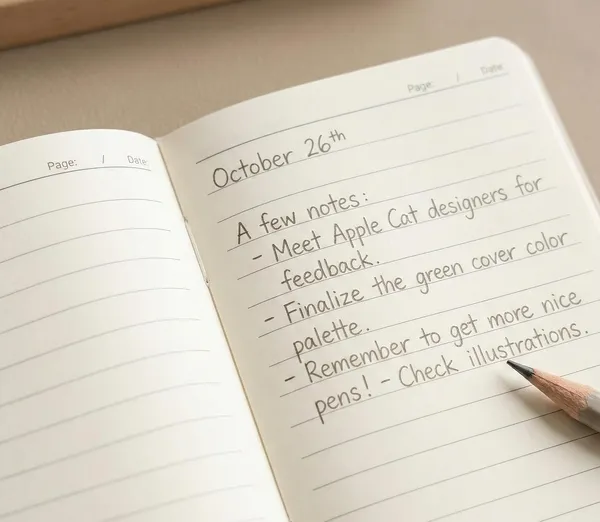 Page: / Date:
Page: / Date
October 26th
A few notes:
- Meet Apple Cat designers for
feedback.
- Finalize the green cover color
palette.
- Remember to get more nice
pens! - Check illustrations.